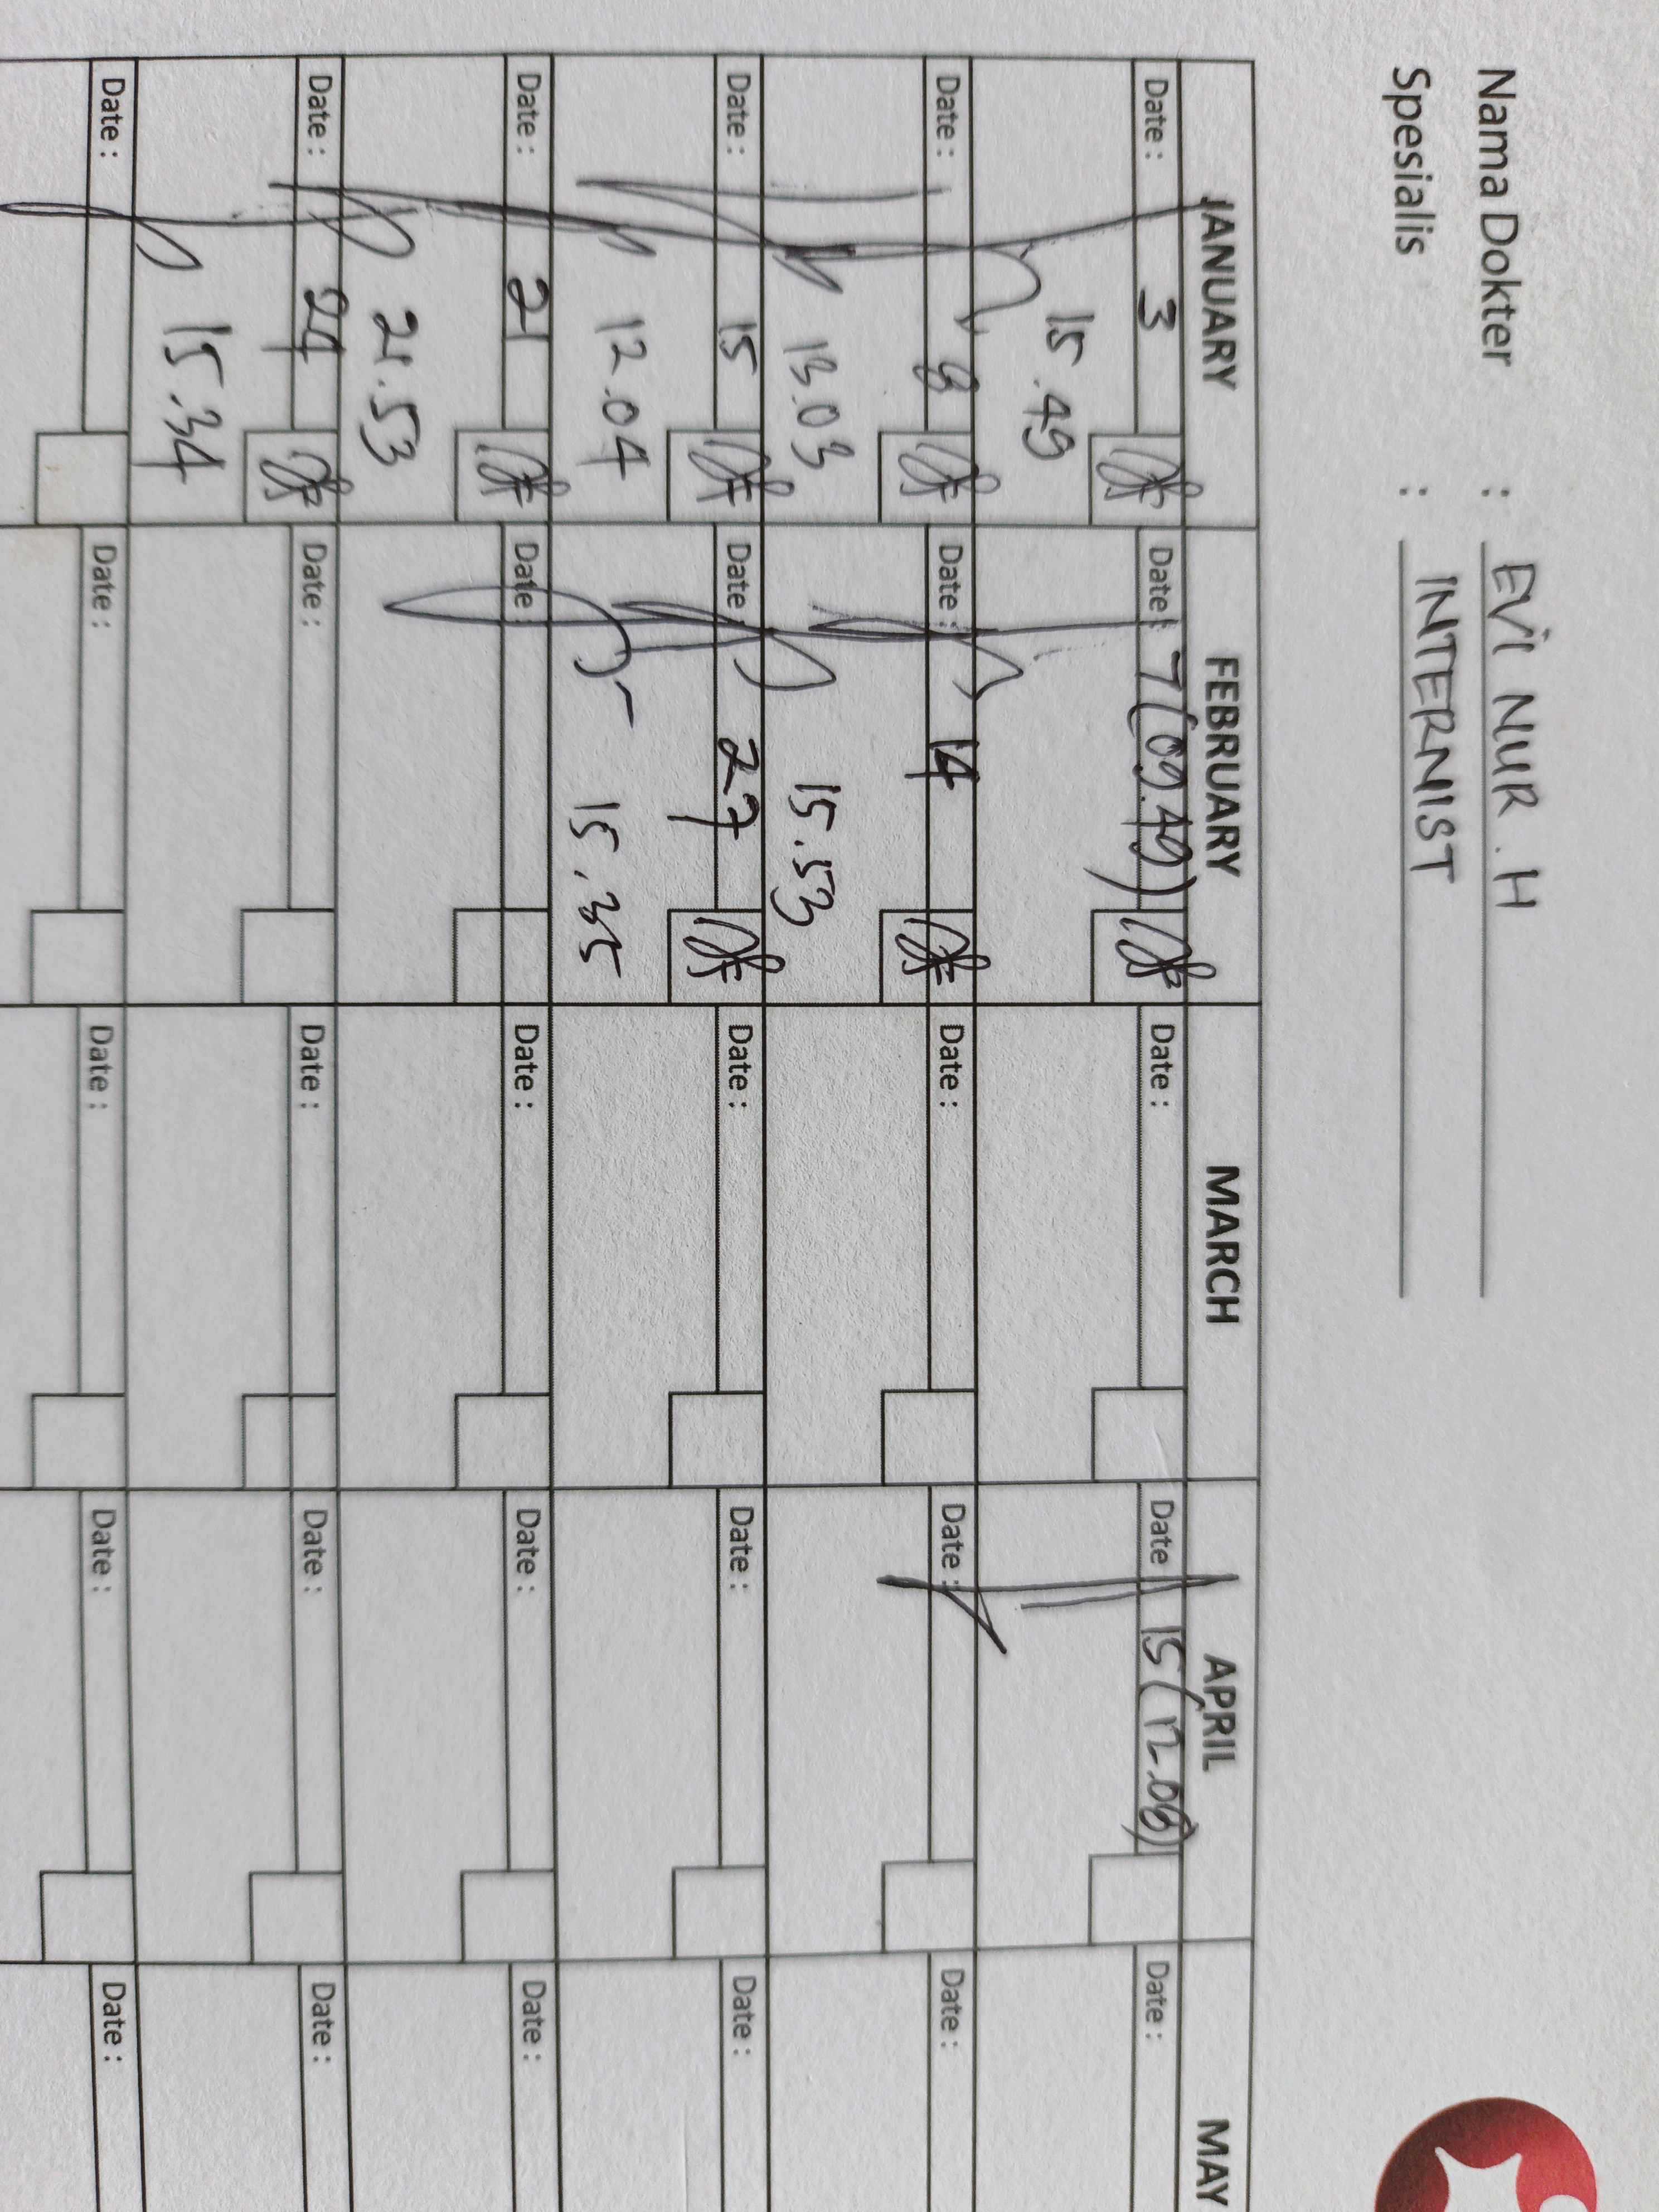 Nama Dokter : EVI NUR . H
Spesialis : INTERNIST
JANUARY FEBRUARY MARCH APRIL MAY
Date : 3 Date : 7 (09.49) Date : Date : 15 (12.08) Date :
15.49
Date : 8 Date : 14 Date : Date : Date :
13.03 15.53
Date : 15 Date : 27 Date : Date : Date :
12.04 15.35
Date : 21 Date : Date : Date : Date :
21.53
Date : 24 Date : Date : Date : Date :
15.34
Date : Date : Date : Date : Date :